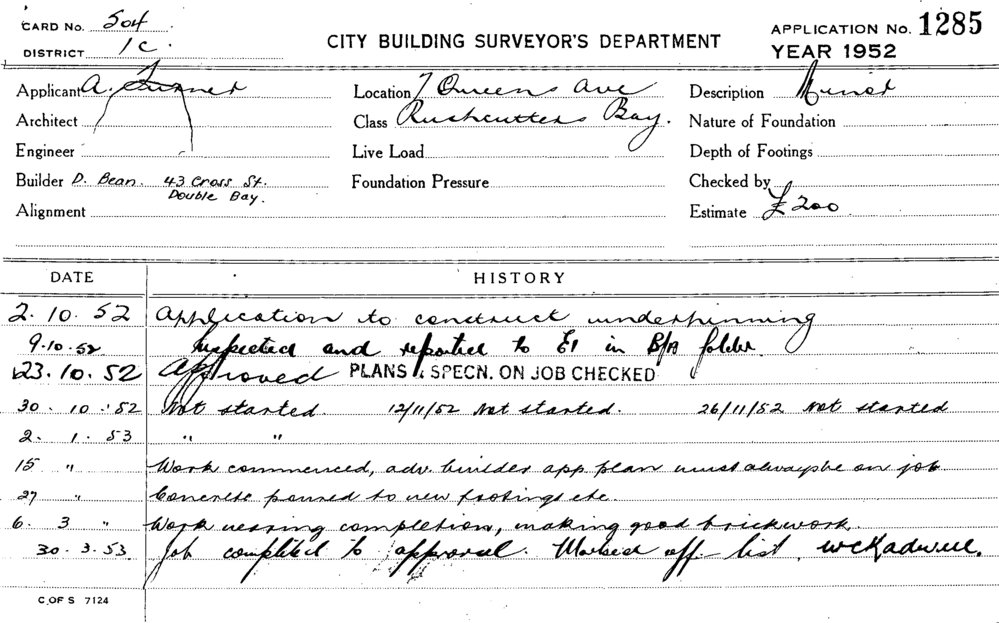 CARD No. 504
DISTRICT 1C.
CITY BUILDING SURVEYOR'S DEPARTMENT
APPLICATION No. 1285
YEAR 1952
Applicant A. Turner
Architect
Engineer
Builder D. Bean. 43 Cross St.
Double Bay.
Alignment
Location 7 Queens Ave
Class Rushcutters Bay.
Live Load
Foundation Pressure
Description Minor
Nature of Foundation
Depth of Footings
Checked by
Estimate £200
DATE HISTORY
2.10.52 Application to construct underpinning
9.10.52 Inspected and reported to E1 in B/A folder.
23.10.52 Approved PLANS & SPECN. ON JOB CHECKED
30.10.52 Not started. 12/11/52 Not started. 26/11/52 Not started
2.1.53 " "
15 " Work commenced, adv. builder app. plan must always be on job
27 " Concrete poured to new footings etc.
6. 3 " Work nearing completion, making good brickwork.
30.3.53 Job completed to approval. Marked off list.
C OF S 7124